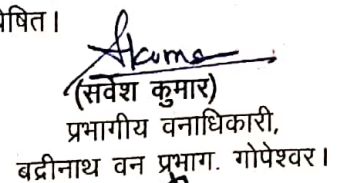 प्रेषित।
(सर्वेश कुमार)
प्रभागीय वनाधिकारी,
बद्रीनाथ वन प्रभाग. गोपेश्वर।